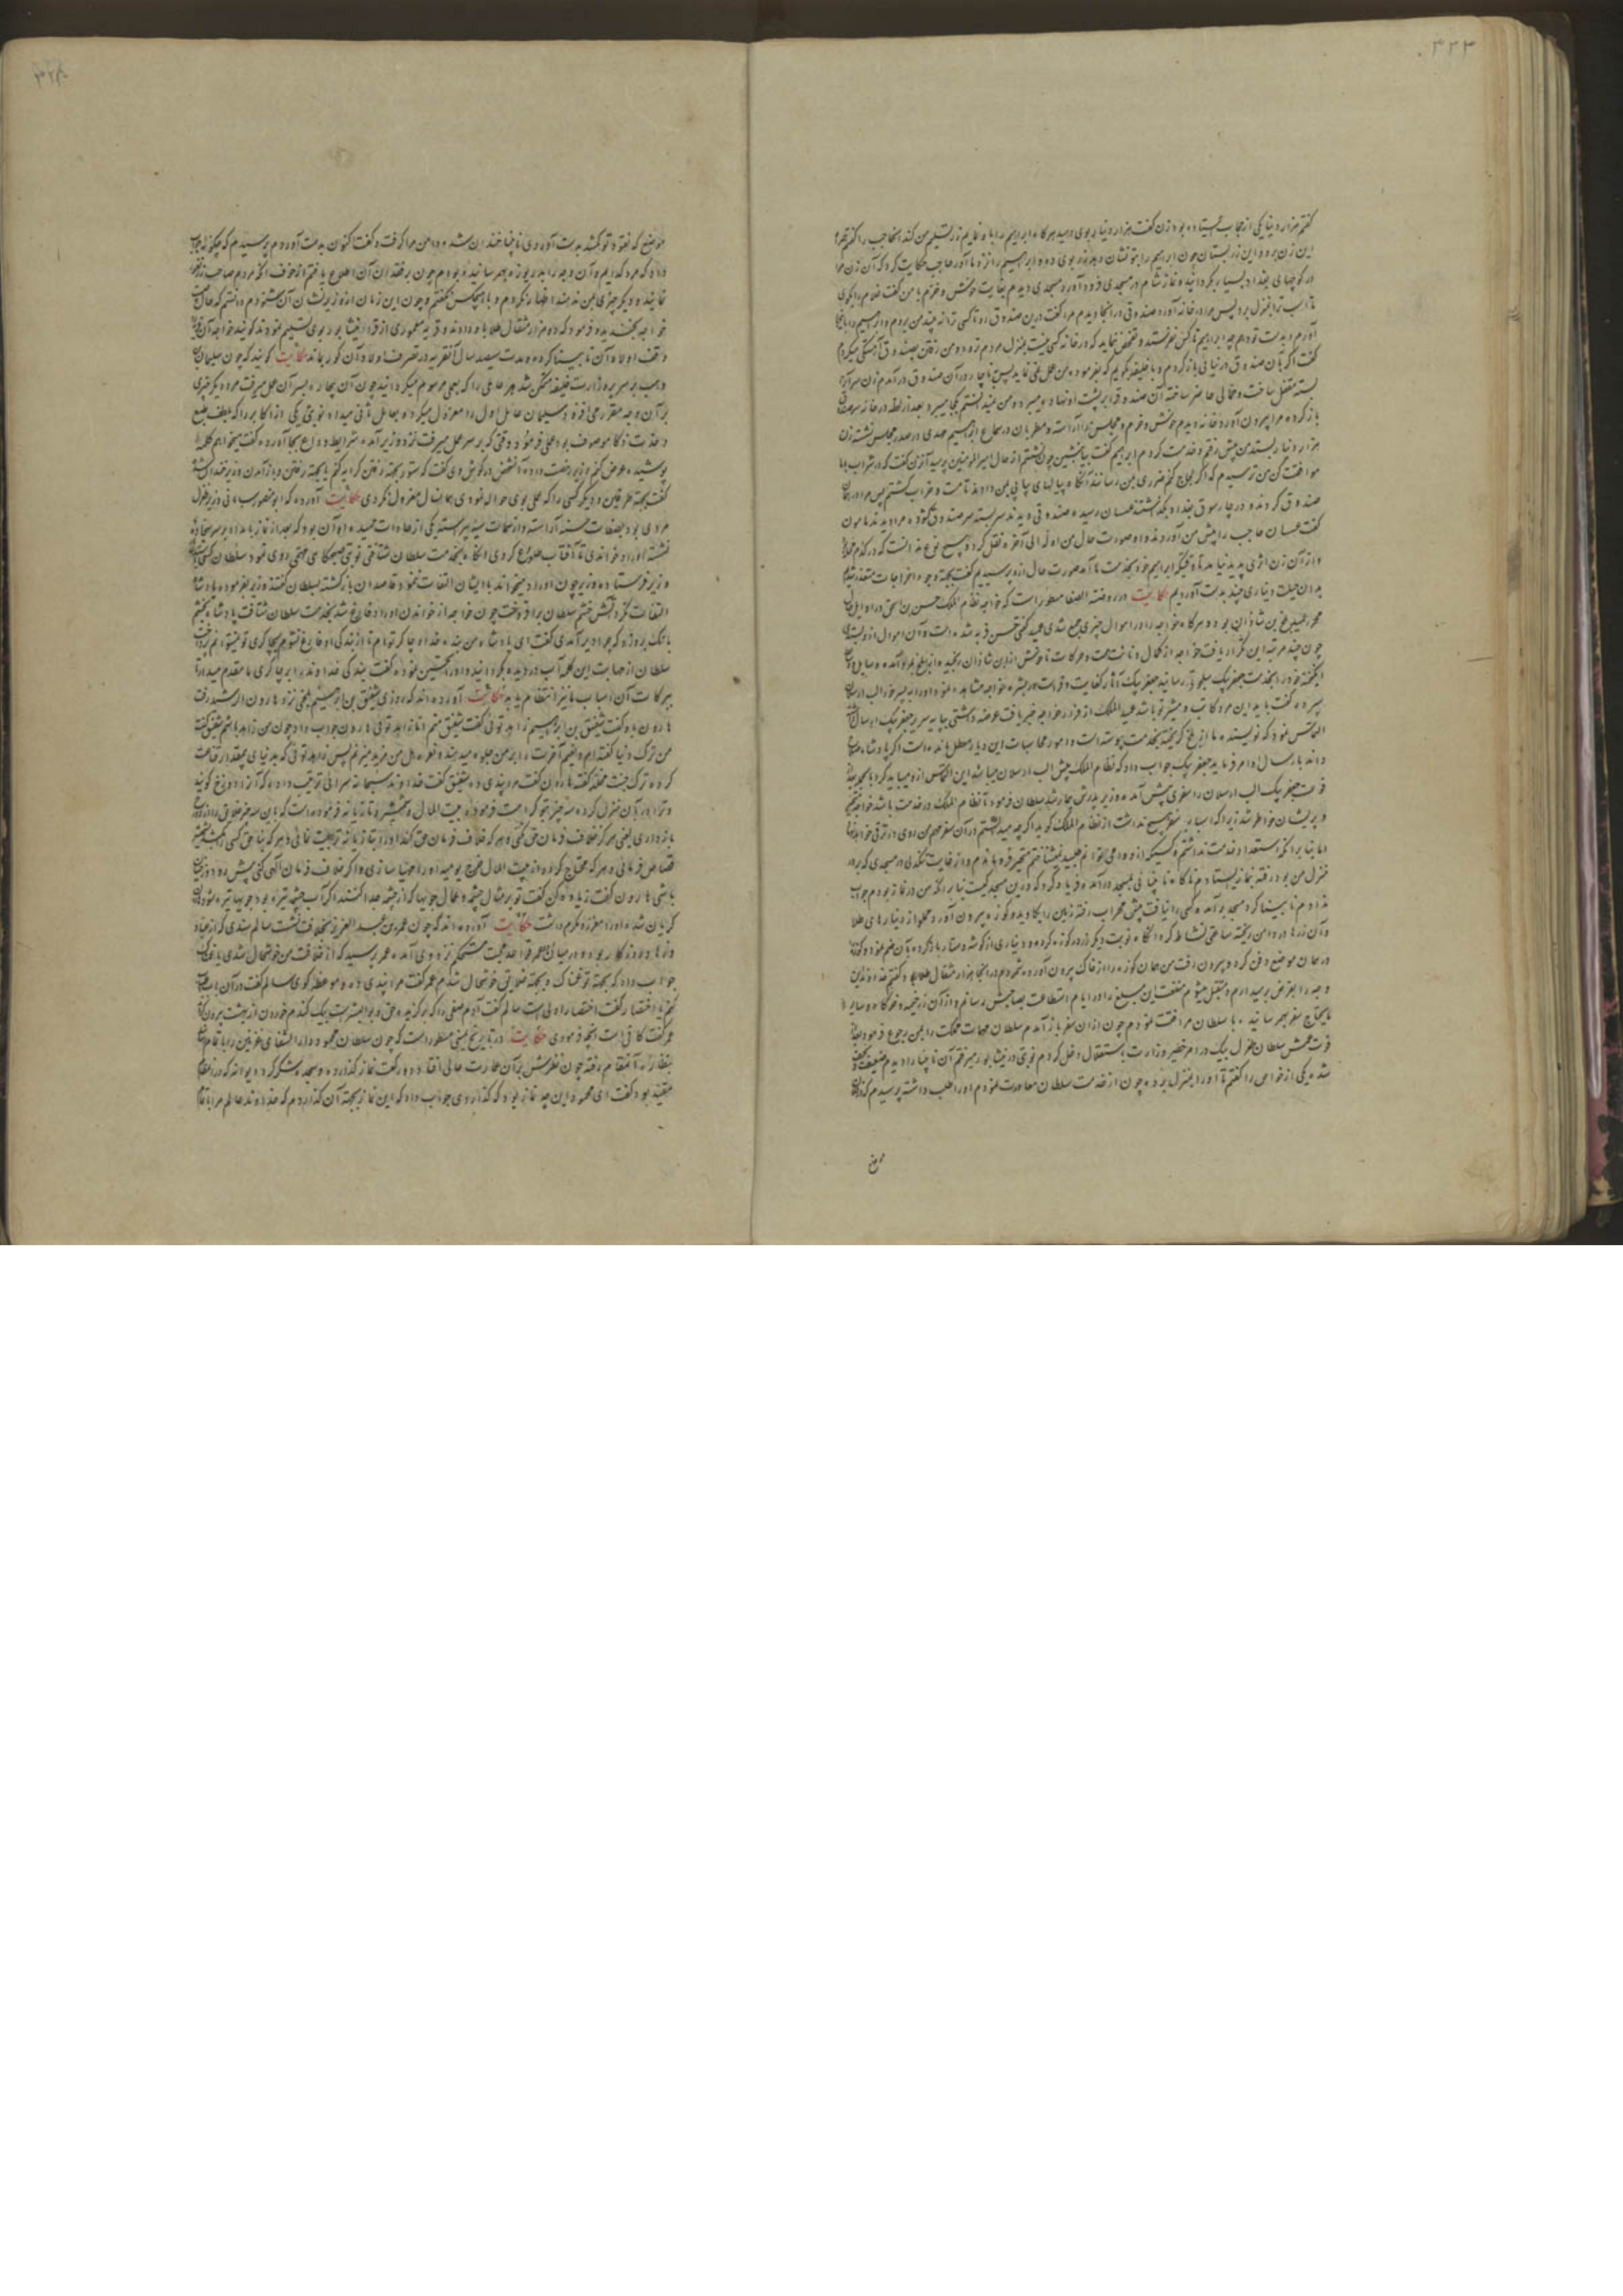 ۴۲۳
گفتم هزار دینار یکی از حجاب ایستاده بود زن گفت هزار دینار بوی دهید هرگاه ابراهیم را با و نمایم زر تسلیم من کند آنحاجب را گفتم همراه
این زن برو و این زر بستان چون ابراهیم را بتو نشان دهد زر بوی ده و ابراهیم را نزد ما آور حاجب حکایت کرد که آن زن مرا
در کوچهای بغداد بسیار بگردانید نماز شام در مسجدی فرود آورد مسجدی دیدم بغایت خوش و خرم با من گفت
آورم و بدست تو دهم چه ابراهیم ناکس نفرستد و تفحص نماید که در خانه کسی نیست
گفت اگر بآن صندوق در نیائی بازگردم و با خلیفه بگویم که بفرموده من عمل نمی نماید پس ناچار در آن صندوق در آمدم زن سر آنرا
بسته مقفل ساخت و حمالی حاضر ساخته آن صندوق را بر پشت او نهاد و میبرد و من نمیدانستم کجا میبرد بعد از لحظه در خانه سر صندوق
باز کرده مرا بیرون آورد خانه دیدم خوش و خرم و مجلسی آراسته و مطربان در سماع ابراهیم مهدی در صدر مجلس نشسته زن
هزار دینار بستد من پیش رفتم و خدمت کردم ابراهیم گفت بیا بنشین چون نشستم از حال امیر المومنین پرسید آنزن گفت که در شراب با ما
موافقت کن من ترسیدم که اگر لجاج کنم ضرری بمن رسانند آنگاه پیالهای پیاپی بمن دادند تا مست و خراب گشتم پس مرا در همان
صندوق کردند و در چارسوق بغداد بگذاشتند عسسان رسیده صندوقی دیدند سر بسته سر صندوق گشوده مرا دیدند مامون
گفت عسسان حاجب را پیش من آوردند و او صورت حال من اوله الی آخره نقل کرد و هیچ نوع ندانست که در کدام محله
و از آن زن اثری پدید نیامد تا وقتیکه ابراهیم خود بخدمت ما آمد صورت حال ازو پرسیدیم گفت بجهة وجه اخراجات متعذر شده
بدان حیلت دیناری چند بدست آوردیم حکایت در روضة الصفا مسطور است که خواجه نظام الملک حسن بن اسحق در اوایل حال
محرر عمید بلخ بن شاذان بود و هرگاه خواجه را در اموال چیزی جمع شدی عمید گفتی حسن فربه شده است و آن اموال ازو بستدی
چون چند مرتبه این تکرار یافت خواجه از کمال دنائت همت و حرکات ناخوش ابن شاذان رنجیده از بلخ بمرو آمد و
خود را بخدمت جعفر بیک سلجوقی رسانید جعفر بیک آثار کفایت و فراست در بشره خواجه مشاهده نموده او را به پسر خود الب ارسلان
سپرده گفت باید این مرد کاتب و مشیر تو باشد عمید الملک از فرار خواجه خبر یافت عرضه داشتی بپایه سریر جعفر بیک ارسال داشته
التماس نمود که نویسنده ما از بلخ گریخته بخدمت پیوسته است و امور محاسبات این دیار معطل مانده است اگر پادشاه صلاح
داند بارسال او امر فرماید جعفر بیک جواب داد که نظام الملک پیش الب ارسلان میباشد این التماس ازو میباید کرد
فوت جعفر بیک الب ارسلان را سفری پیش آمد و وزیر پدرش بیمار شد سلطان فرمود تا نظام الملک در خدمت باشد خواجه متحیر
و پریشان خاطر شد زیرا که اسباب سفر هیچ نداشت از نظام الملک گوید اگر چه میدانستم در آن سفر مهم من روی در ترقی خواهد نهاد
اما بنا بر آنکه استعداد خدمت نداشتم و کسیکه ازو وامی توانم طلبید نمیشناختم متحیر فرو ماندم و از غایت تنگدلی در مسجدی که بر در
منزل من بود رفته بنماز ایستادم ناگاه نابینائی بمسجد در آمده فریاد کرد که درین مسجد کیست بنابر آنکه من در نماز بودم جواب
ندادم نابینا گرد مسجد بر آمده کسی را نیافت پیش محراب رفته زمین را بکاوید و کوزه بیرون آورد مملو از دینارهای طلا
و آن زرها در دامن ریخته ساعتی نشاط کرد آنگاه نوبت دیگر زر در کوزه کرده و دیناری از گوشه دستار باز کرده بآن ضم نمود و کوزه
در همان موضع دفن کرده و بیرون رفت من همان کوزه را از خاک بیرون آورده شمردم در آنجا هزار مثقال طلا بود گفتم خداوندا این
وجه را بقرض بر میدارم و متقبل میشوم که این مبلغ را در ایام استطاعت بصاحبش رسانم و از آن زر خیمه و خرگاه و سایر
مایحتاج سفر بهم رسانیده با سلطان مرافقت نمودم چون از آن سفر باز آمدم سلطان مهمات مملکت را بمن رجوع فرمود بعد از
فوت عمش سلطان طغرل بیک در امر خطیر وزارت باستقلال دخل کردم نوبتی در نیشابور میرفتم آن نابینا را دیدم ضعیف و نحیف
شده یکی از خواص را گفتم تا او را بمنزل برده چون از خدمت سلطان معاودت نمودم او را طلب داشته پرسیدم که از آن
موضع
موضع که نقود تو گم شد بدست آوردی نابینا خندان شده دامن مرا گرفت و گفت اکنون بدست آوردم پرسیدم که چگونه جواب
داد که مرد گدایم و آن وجه را بدریوزه بهم رسانیده بودم چون بر فقدان آن اطلاع یافتم از خوف آنکه مردم صاحب زرم
نمایند و دیگر چیزی بمن ندهند اظهار نکردم و با هیچکس نگفتم و چون این زمان از وزیر نشان آن شنودم دانستم که حال چیست
خواجه بخندید و فرمود که دو هزار مثقال طلا باو دادند و قریه معموری از قرای نیشابور بوی تسلیم نمودند گویند خواجه آن قریه
وقف اولاد آن نابینا کرد و مدت سیصد سال آنقریه در تصرف اولاد آن کور بماند حکایت گویند که چون سلیمان بن
وهب بر سریر وزارت خلیفه متمکن شد هر عاملی را که بعملی مرسوم میگردانید چون آن بیچاره بسر آن عمل میرفت مرد دیگر چیزی
بر آن وجه مقرر می افزود سلیمان عامل اول را معزول میکرده بعامل ثانی میداد نوبتی یکی از اکابر را که بلطف طبع
و حدت ذکا موصوف بود عملی فرمود وقتی که بر سر عمل میرفت نزد وزیر آمده شرایط وداع بجا آورد گفت میخواهم کلمهٔ
پوشیده عرض کنم وزیر رخصت داده آنشخص در گوش وی گفت که ستور بجهة رفتن کرایه کنم یا بجهة رفتن و باز آمدن وزیر خندان شد
گفت بجهة طرفین و دیگر کسی را که عملی بوی حواله نمودی معزول نکردی حکایت آورده که ابو منصور وزیر طغرل
مردی بود بصفات حسنه آراسته و از سمات سیئه پیراسته یکی از عادات حمیده او آن بود که بعد از نماز بامداد بر سر سجاده
نشسته اوراد خواندی تا آفتاب طلوع کردی آنگاه بخدمت سلطان شتافتی نوبتی صبحگاهی مهمی روی نمود سلطان کس بطلب
وزیر فرستاده وزیر چون اوراد میخواند بایشان التفات ننمود قاصدان بازگشته بسلطان گفتند وزیر بفرموده پادشاه
التفات نکرد آتش خشم سلطان برافروخت چون خواجه از خواندن اوراد فارغ شد بخدمت سلطان شتافت پادشاه بخشم
بانگ بر وزد که چرا دیر آمدی گفت ای پادشاه من بنده خداوند و چاکر توام تا از بندگی او فارغ نشوم بچاکری تو نتوانم پرداخت
سلطان از مهابت این کلمه آب در دیده بگردانید و او را تحسین نموده گفت بندگی خداوند را بر چاکری ما مقدم میدار تا
ببرکات آن اسباب ما نیز انتظام یابد حکایت آورده اند که روزی شقیق بن ابراهیم بلخی نزد هارون الرشید رفت
هارون باو گفت شقیق بن ابراهیم زاهد توئی گفت شقیق منم اما زاهد توئی هارون جواب داد چون من زاهد باشم شقیق گفت
من ترک دنیا گفته ام و نعیم آخرت را بر من جلوه میدهند و نعره هل من مزید میزنم پس زاهد توئی که بدنیای بیمقدار قناعت
کرده ترک جنت مخلد گفته هارون گفت مرا پندی ده شقیق گفت خداوند سبحانه سرائی ترتیب داده که آنرا دوزخ گویند
و ترا دربان منزل کرده سه چیز بتو کرامت فرموده بیت المال و شمشیر و تازیانه فرموده است که باین سه چیز خلایق را از دوزخ
باز داری یعنی هر که خلاف فرمان حق کند او را بتازیانه تربیت نمائی و هر که بناحق کسی را بکشد بشمشیر
قصاص فرمائی و هر که محتاج گردد از بیت المال خرج یومیه او را مهیا سازی و اگر خلاف فرمان آلهی کنی پیش رو دوزخیان
باشی هارون گفت زیاده کن گفت تو بر مثال چشمه و عمال جویها که از چشمه جدا گشتند اگر آب چشمه تیره بود جویها تیره شود هارون
گریان شد او را معزز و مکرم داشت حکایت آورده اند که چون عمر بن عبد العزیز بخلافت نشست سالم سندی که از عباد
و زهاد روزگار بود و در میان او و عمر قواعد محبت مستحکم نزد وی آمد عمر پرسید که از خلافت من خوشحال شدی یا غمناک
جواب داد که بجهة تو غمناک و بجهة خلایق خوشحال شدم عمر گفت مرا پندی ده و موعظه گوی سالم گفت در آن باب اطناب
کنم یا اختصار گفت اختصار اولی است سالم گفت آدم صفی را که برگزیده حق و ابو البشر است بیک گندم خوردن از بهشت بیرون کردند
عمر گفت کافی است آنچه فرمودی حکایت در تاریخ یمینی مسطور است که چون سلطان محمود دار الشفای غزنین را باتمام رسانید
بنظاره آنمقام رفته چون نظرش بر آن عمارت عالی افتاد دو رکعت نماز گذارده و سجده شکر کرد دیوانه که در آنمقام
مقید بود گفت ای محمود این چه نماز بود که گذاردی جواب داد که این نماز بجهة آن گذاردم که خداوند عالم مرا باتمام